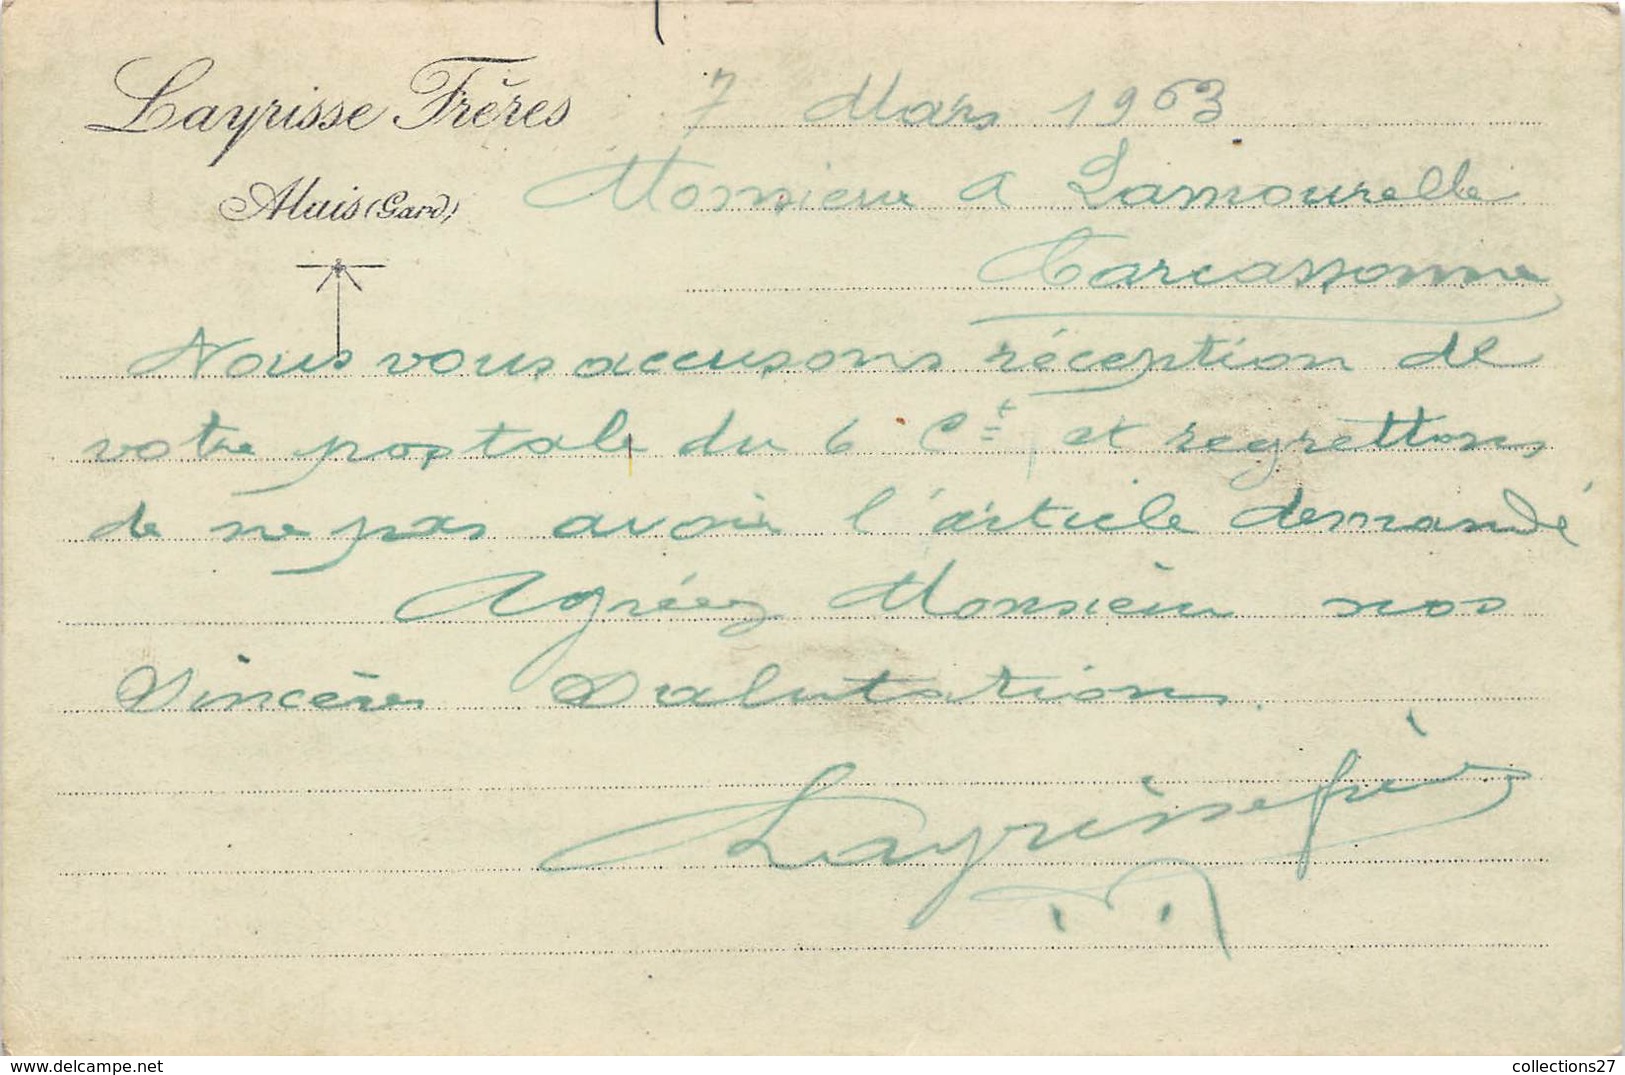 Layrisse Frères
Alais (Gard)
7 Mars 1903
Monsieur A Lamourelle
Carcassonne
Nous vous accusons réception de
votre postale du 6 Ct et regrettons
de ne pas avoir l'article demandé
Agréez Monsieur nos
Sincères Salutations.
Layrisse frères
collections27